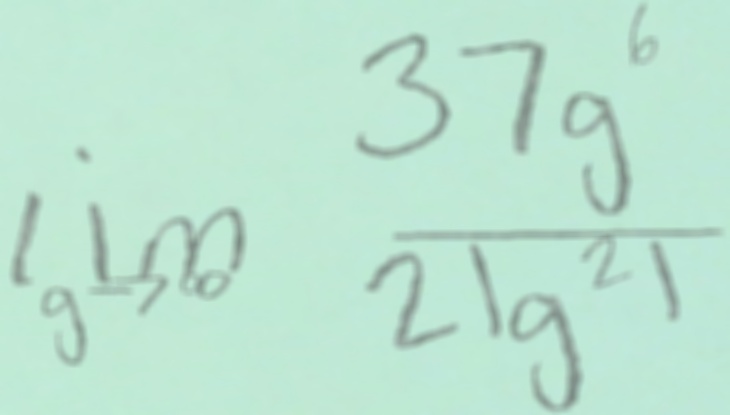 lim 37g^6
g→∞ 21g^21